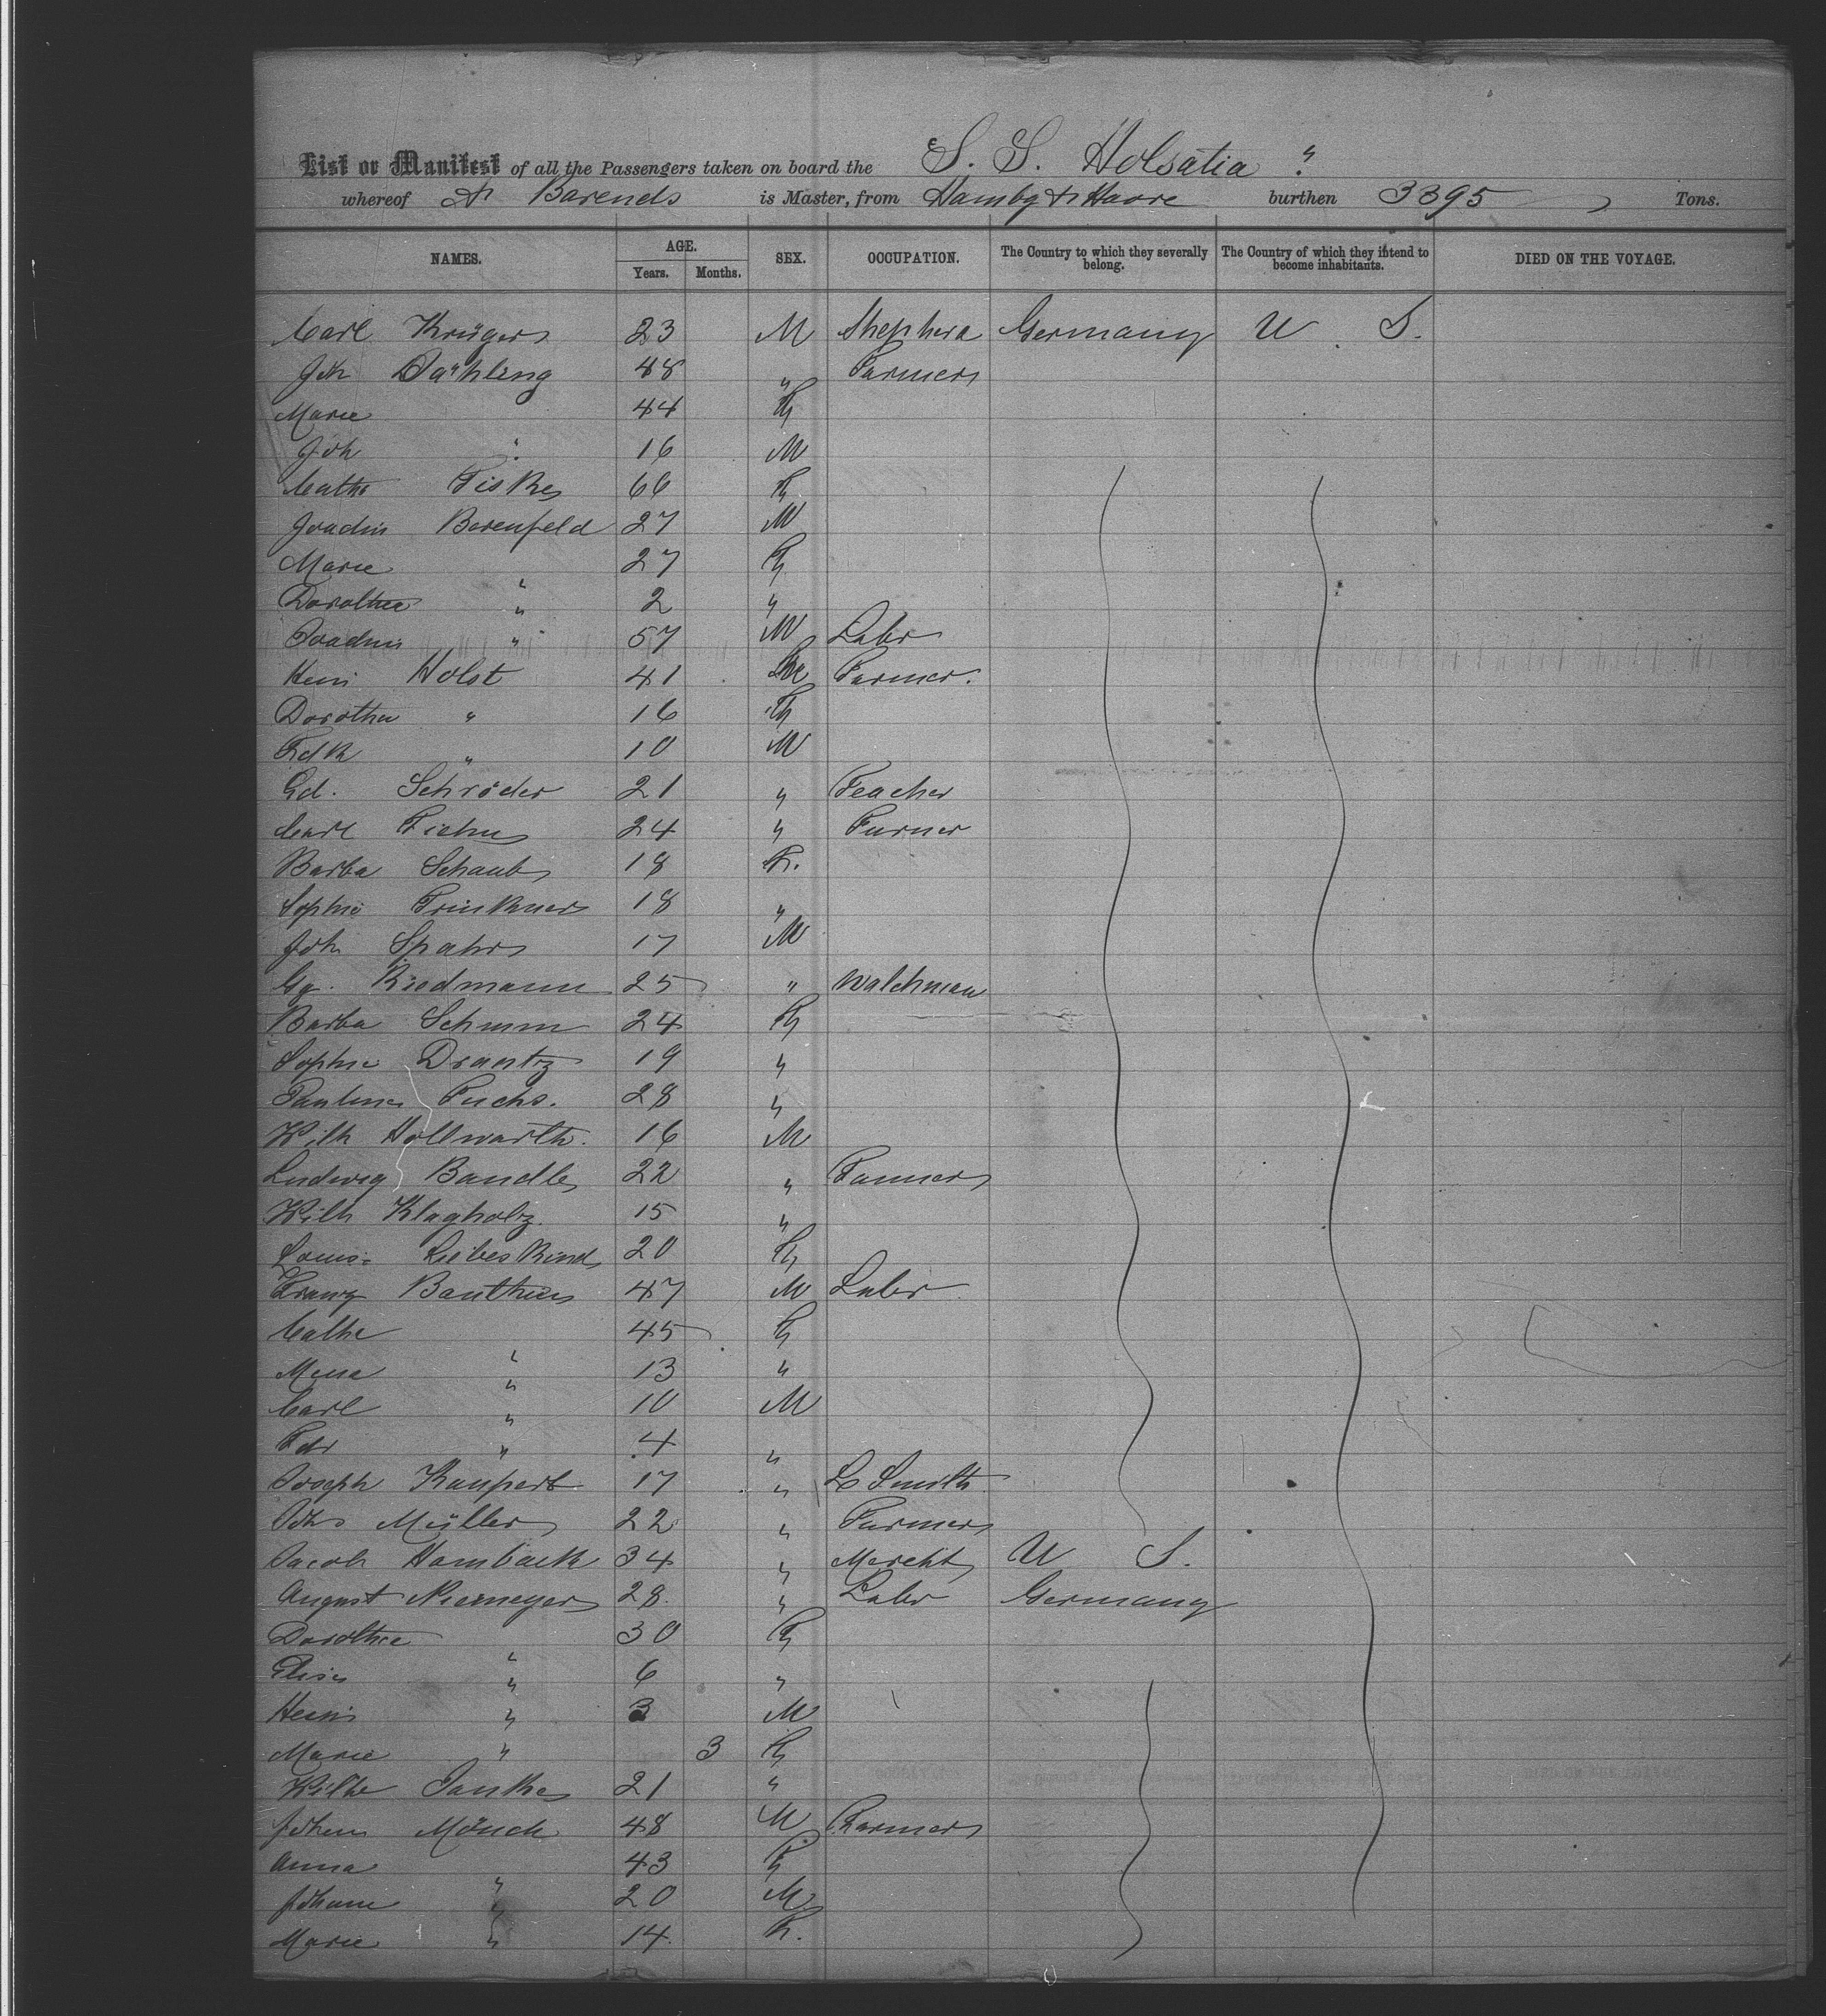 List or Manifest of all the Passengers taken on board the S. S. Holsatia "
whereof A Barends is Master, from Hambg & Havre burthen 3395 Tons.
NAMES. AGE. Years. Months. SEX. OCCUPATION. The Country to which they severally belong. The Country of which they intend to become inhabitants. DIED ON THE VOYAGE.
Carl Krüger 23 M Shepherd Germany U. S.
Joh Dähling 48 " Farmer
Marie 44 F
Joh " 16 M
Cathe Fiske 66 F
Joachim Barenfeld 27 M
Marie " 27 F
Dorothea " 2 "
Joachim " 57 M Labr
Henr Holst 41 M Farmer
Dorothea " 16 F
Fdk " 10 M
Ed. Schröder 21 " Teacher
Carl 24 "
Barba Schaub 18 F.
Sophie Trinkner 18 "
Joh Spahr 17 M
Gg. Riedmann 25 " Watchman
Barba Schumm 24 F
Sophie 19 "
Pauline Fuchs. 28 "
Wilh Hollwarth. 16 M
Ludwig Bandle 22 " Farmer
Wilh Klagholz. 15 "
Louis. Liebeskind 20 F
Franz 47 M Labr
Cathe " 45 F
" 13 "
Carl " 10 M
Fdr " 4 "
Joseph Kaupert 17 " L Smith
Johs Müller 22 " Farmer
Jacob Hamback 34 " Mercht U S.
August Niemeyer 28. " Labr Germany
Dorothee " 30 F
Elise " 6 "
Henri " 3 M
Marie " 3 F
Wilhe Janke 21 "
Johann Mönch 48 M Farmer
Anna " 43 F
Johann " 20 M
Marie " 14. F.